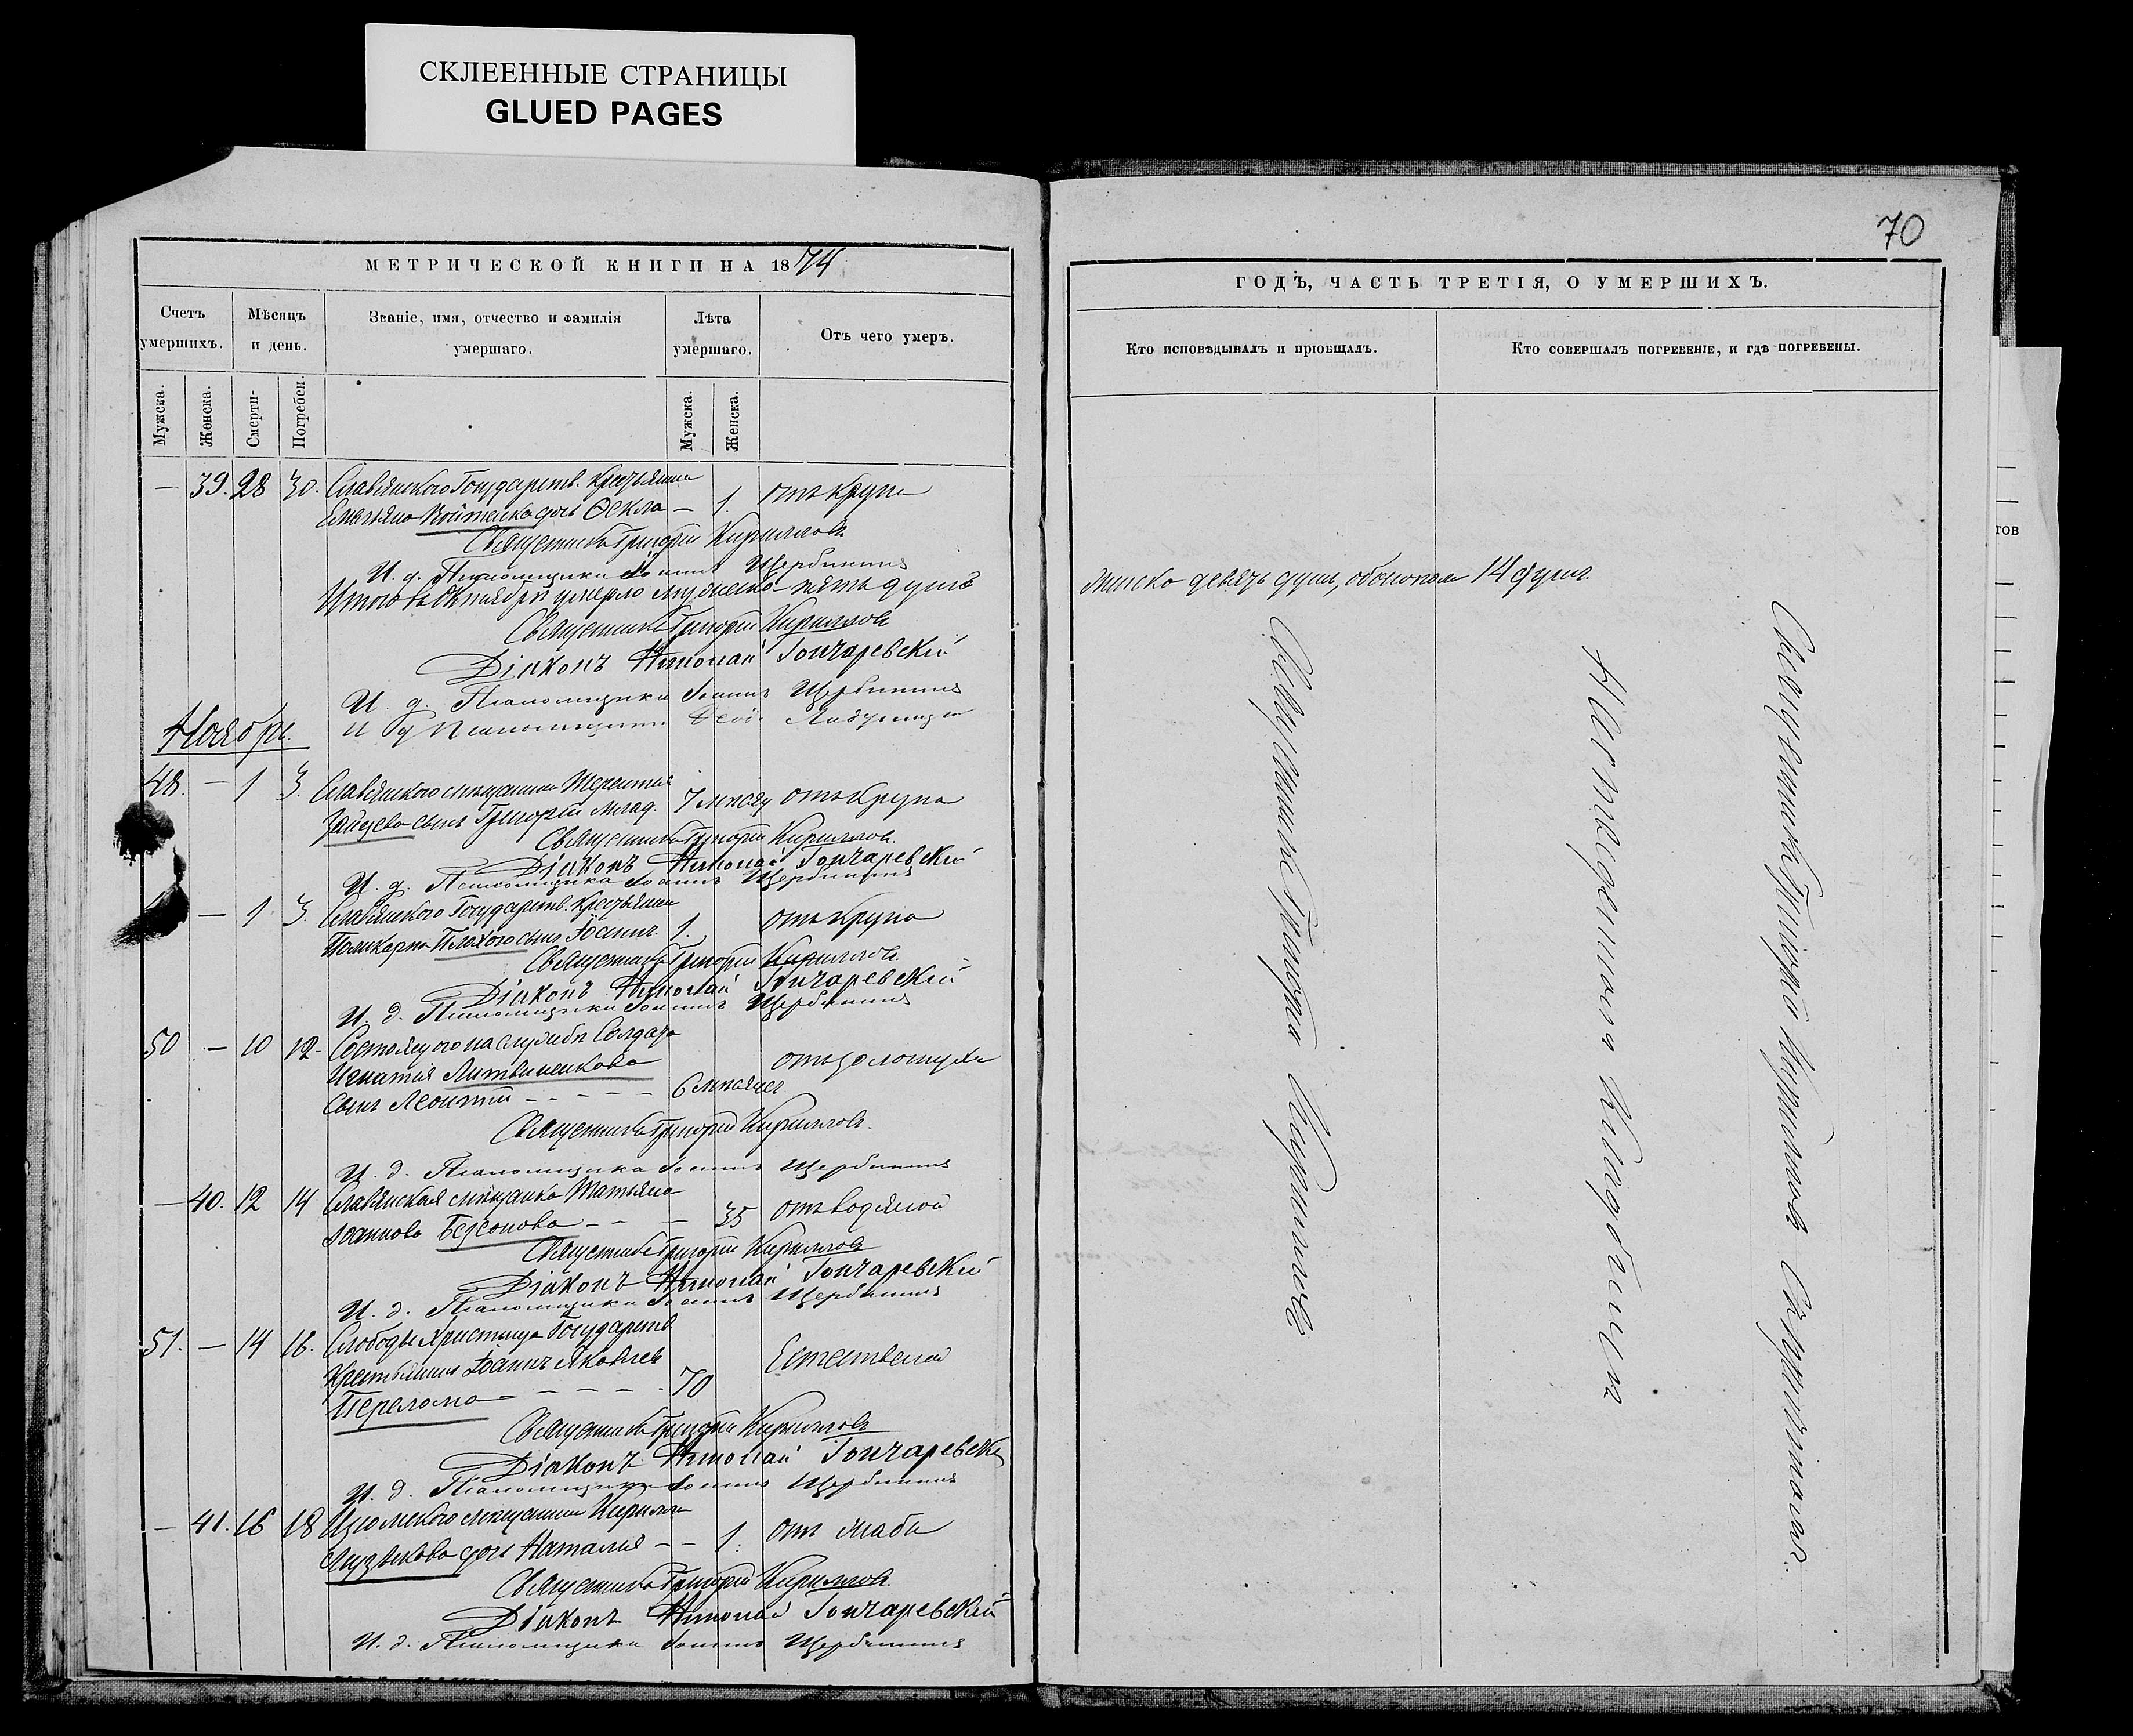 СКЛЕЕННЫЕ СТРАНИЦЫ
GLUED PAGES
МЕТРИЧЕСКОЙ КНИГИ НА 1874
Счетъ умершихъ.
Мѣсяцъ и день.
Званіе, имя, отчество и фамилія умершаго.
Лѣта умершаго.
Отъ чего умеръ.
Мужска.
Женска.
Смерти-
Погребен.
Мужска.
Женска.
— 39. 28 30. Славянского Государств. Крестьянина
Войтенка дочь Ѳекла — 1. отъ крупа
Священникъ Григорій Кирилловъ
И. д. Псаломщика Іоаннъ Щербининъ
Итого въ Октябрѣ умерло мужеска — пять душъ
Священникъ Григорій Кирилловъ
Діаконъ Николай Гончаревскій
И. д. Псаломщика Іоаннъ Щербининъ
И д Псаломщика
Ноябрь.
48. — 1 3. Славянского мѣщанина Терентія
Зайцева сынъ Григорій млад. 7 мѣсяц отъ Крупа
Священникъ Григорій Кирилловъ.
Діаконъ Николай Гончаревскій
И. д. Псаломщика Іоаннъ Щербининъ
— 1 3. Славянского Государств. Крестьянина
Поликарпа Плахого сынъ Іоаннъ. 1. отъ крупа
Священникъ Григорій Кирилловъ.
Діаконъ Николай Гончаревскій
И. д. Псаломщика Іоаннъ Щербининъ
50 — 10 12. Состоящого на службѣ Солдата
Игнатія Литвиненкова отъ золотухи
сынъ Леонтій — — — — — 6 мѣсяцев
Священникъ Григорій Кирилловъ.
И. д. Псаломщика Іоаннъ Щербининъ
— 40. 12 14 Славянская мѣщанка Татьяна
Іоаннова Безсонова — — — 35 отъ водяной
Священникъ Григорій Кирилловъ
Діаконъ Николай Гончаревскій
И. д. Псаломщика Іоаннъ Щербининъ
51. — 14 16. Слободы Христища Государств
Крестьянинъ Іоаннъ Яковлев
Перелома — — — — 70 Естественой
Священникъ Григорій Кирилловъ
Діаконъ Николай Гончаревскі
И. д. Псаломщика Іоаннъ Щербининъ
— 41. 16 18 Изюмского мѣщанина Кирилла
дочь Наталія — — 1. отъ жабы
Священникъ Григорій Кирилловъ.
Діаконъ Николай Гончаревскій
И. д. Псаломщика Іоаннъ Щербининъ
70
ГОДЪ, ЧАСТЬ ТРЕТІЯ, О УМЕРШИХЪ.
Кто исповѣдывалъ и пріобщалъ.
Кто совершалъ погребеніе, и гдѣ погребены.
женско девять душъ, обоихъ пола 14 душъ.
Священникъ Григорій Кирилловъ
На приходскомъ Кладбищѣ
Священникъ Григорій Кирилловъ съ причтомъ.
тов